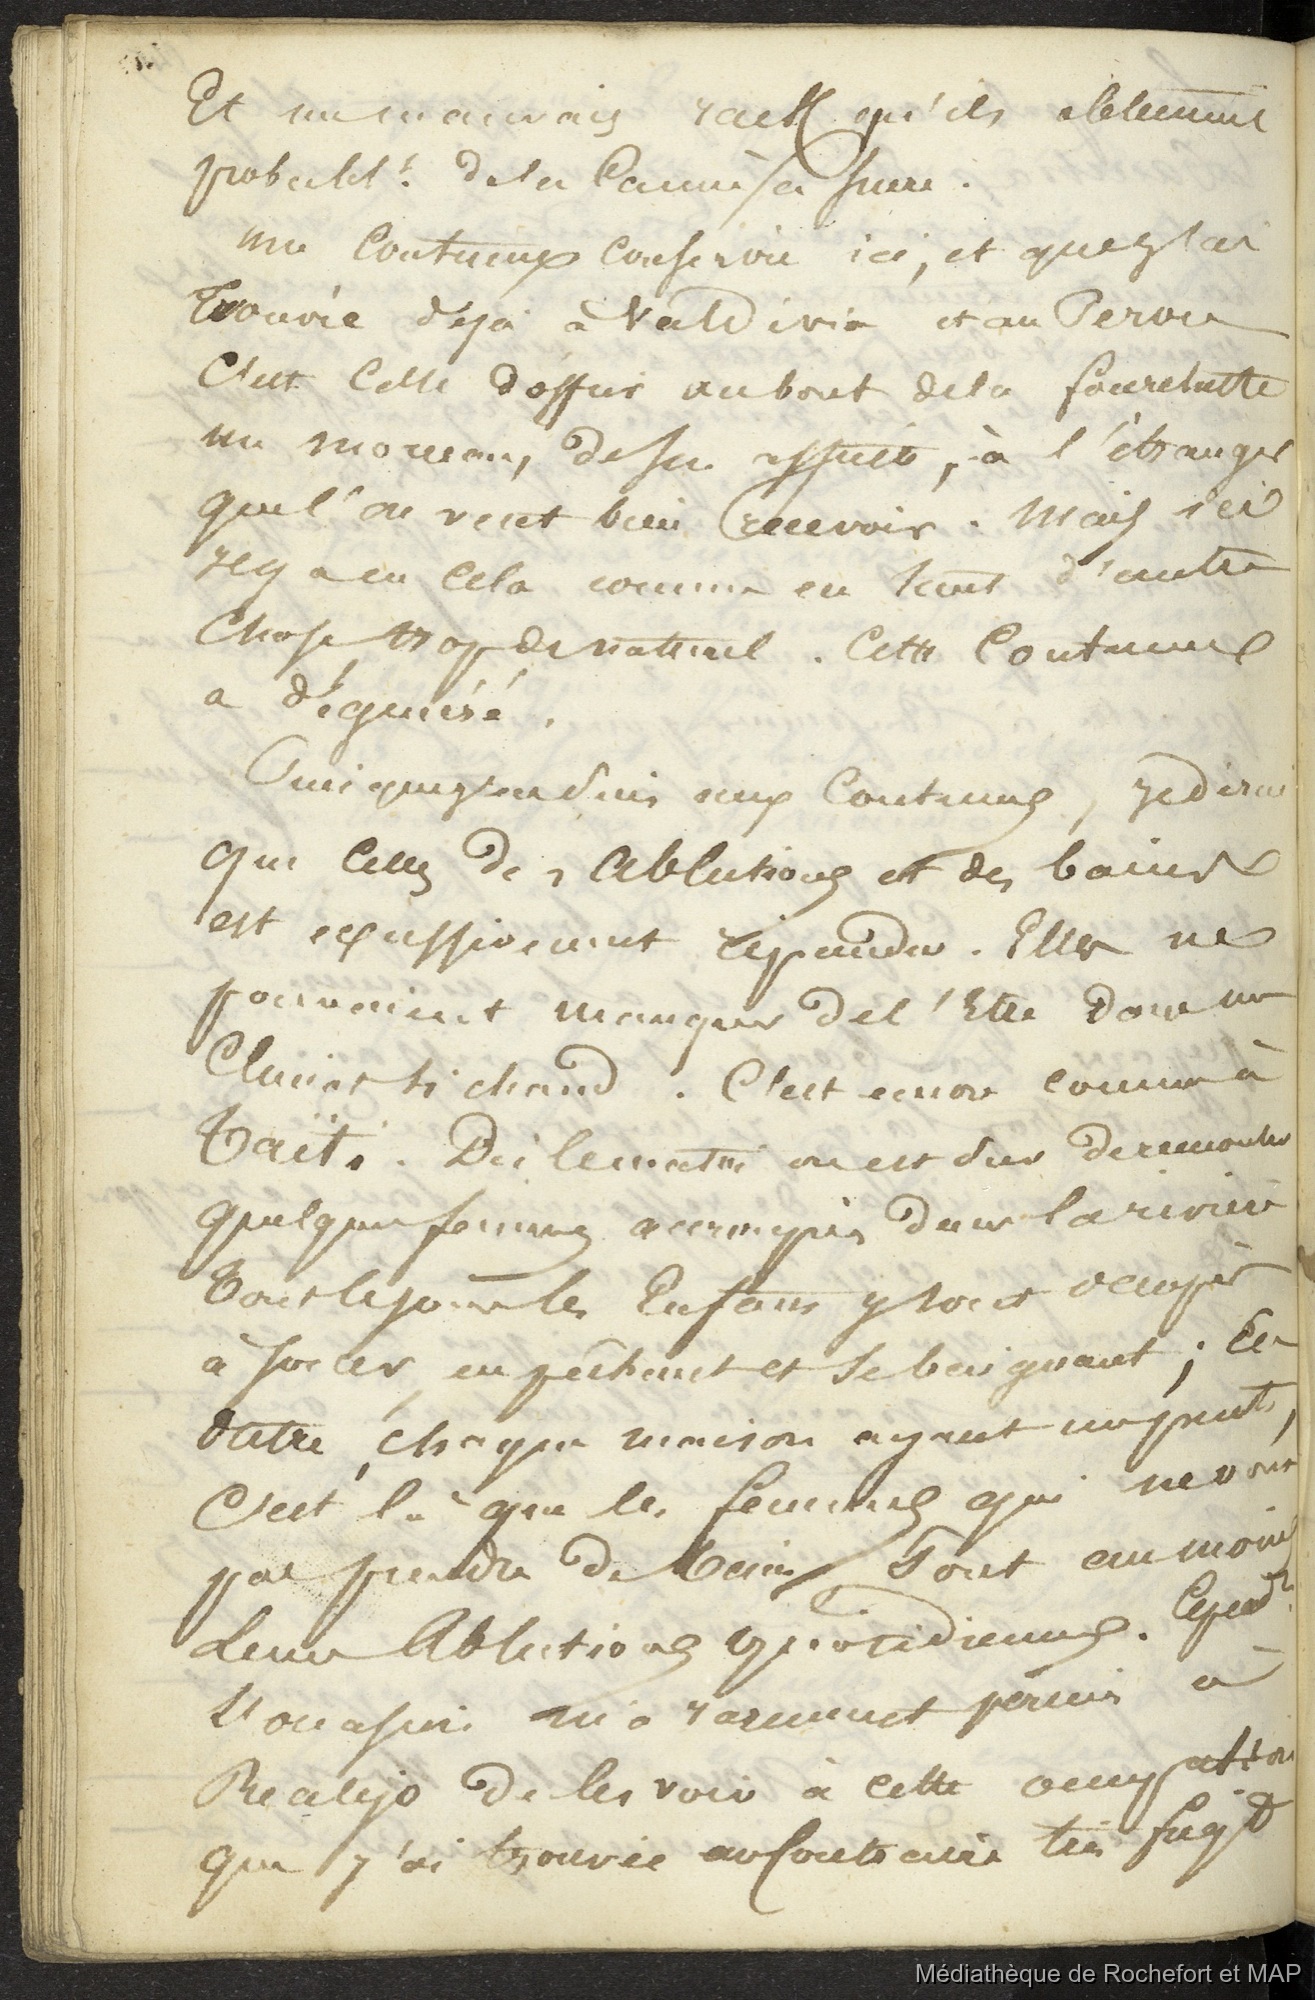 Et un mauvais rack qu'ils obtiennent
probablt. de la Canne à sucre.
une Coutume conservée ici, et que j'ai
trouvée déjà à Valdivia et au Perou
C'est Celle d'offrir au bout de la fourchette
un morceau, de son assiette, à l'étranger
que l'on veut bien recevoir. Mais ici
il y a en cela comme en tout d'autre
Chose trop de naturel. Cette Coutume
a dégénéré.
Puisque j'en suis aux Coutumes, je dirai
que Celle des Ablutions et des bains
est excessivement répandue. Elle ne
pouvaient manquer de l'Etre dans un
Climat si chaud. C'est encore comme à
Taïti. Dès le matin on est sur de rencontrer
quelques femmes accroupies dans la rivière
Tout le jour les Enfans y sont occupés
à jouer, en pêchant et se baignant; En
outre, chaque maison ayant un puits,
C'est là que les femmes qui ne vont
pas prendre de bains font au moins
Leurs Ablutions quotidiennes. Cepend.t
L'occasion m'a rarement permis à
Realejo de les voir à cette occupation
que j'ai trouvée au Contraire très